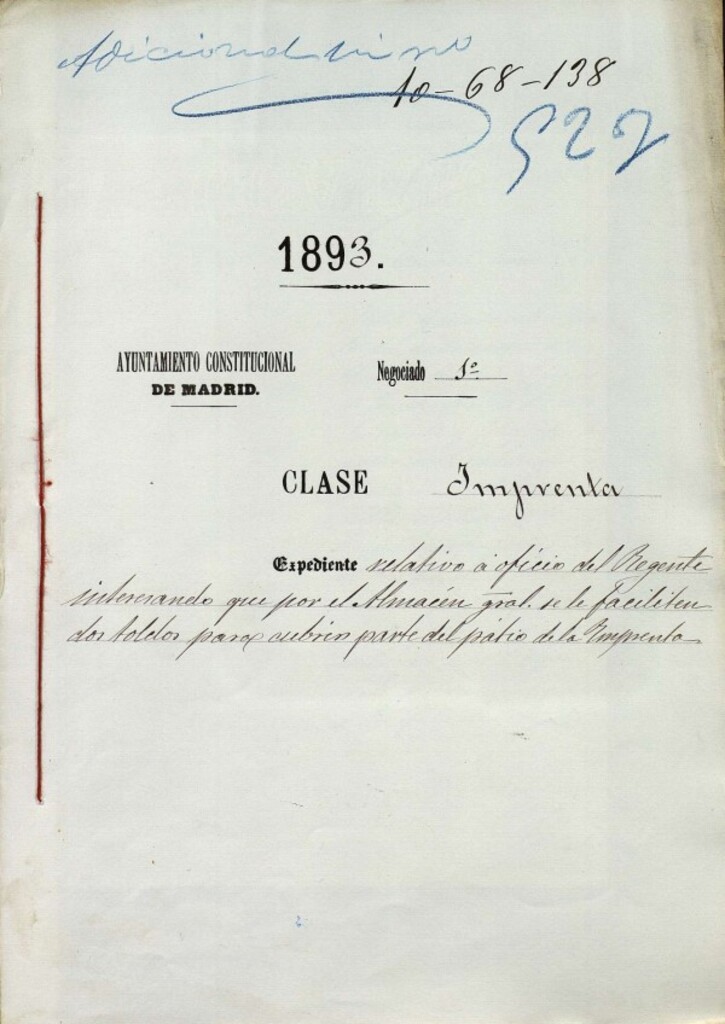 Adicional
10-68-138
527
1893.
AYUNTAMIENTO CONSTITUCIONAL
DE MADRID.
Negociado 1º
CLASE Imprenta
Expediente relativo á oficio del Regente
interesando que por el Almacén gral. se le faciliten
dos toldos para cubrir parte del pátio de la Imprenta